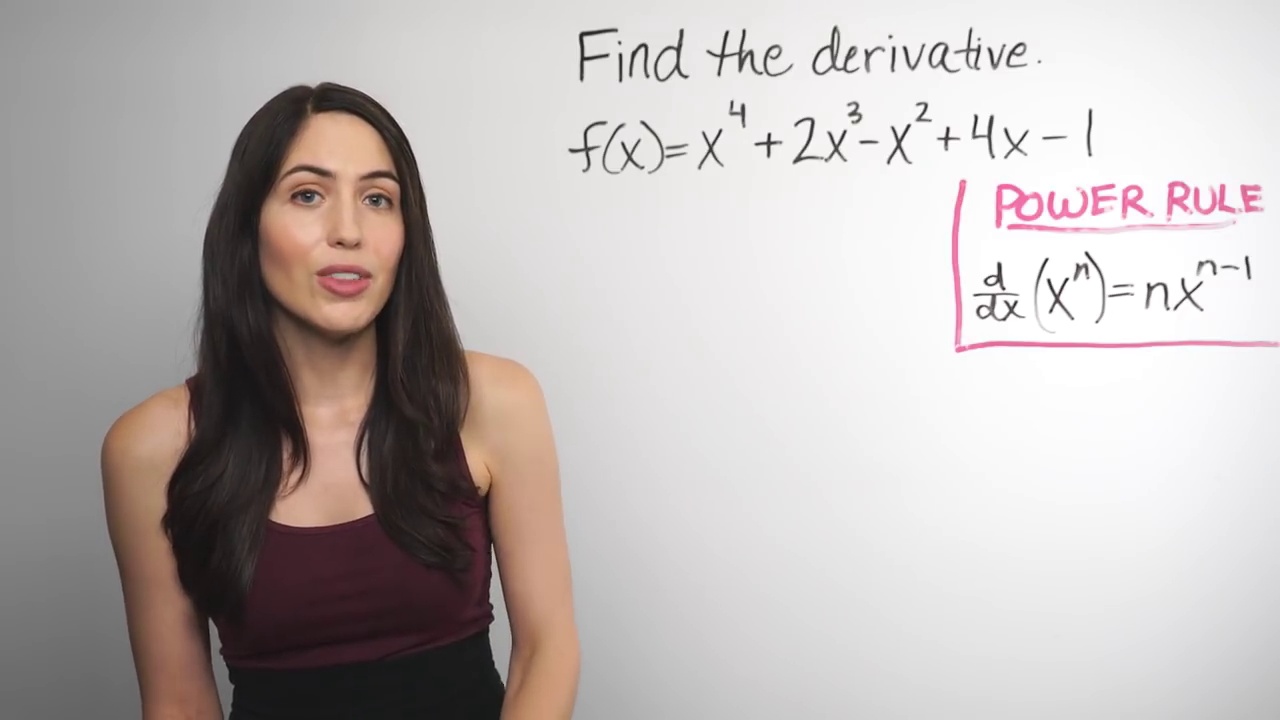 Find the derivative.
f(x)=x⁴+2x³-x²+4x-1
POWER RULE
d/dx (xⁿ)=nxⁿ⁻¹